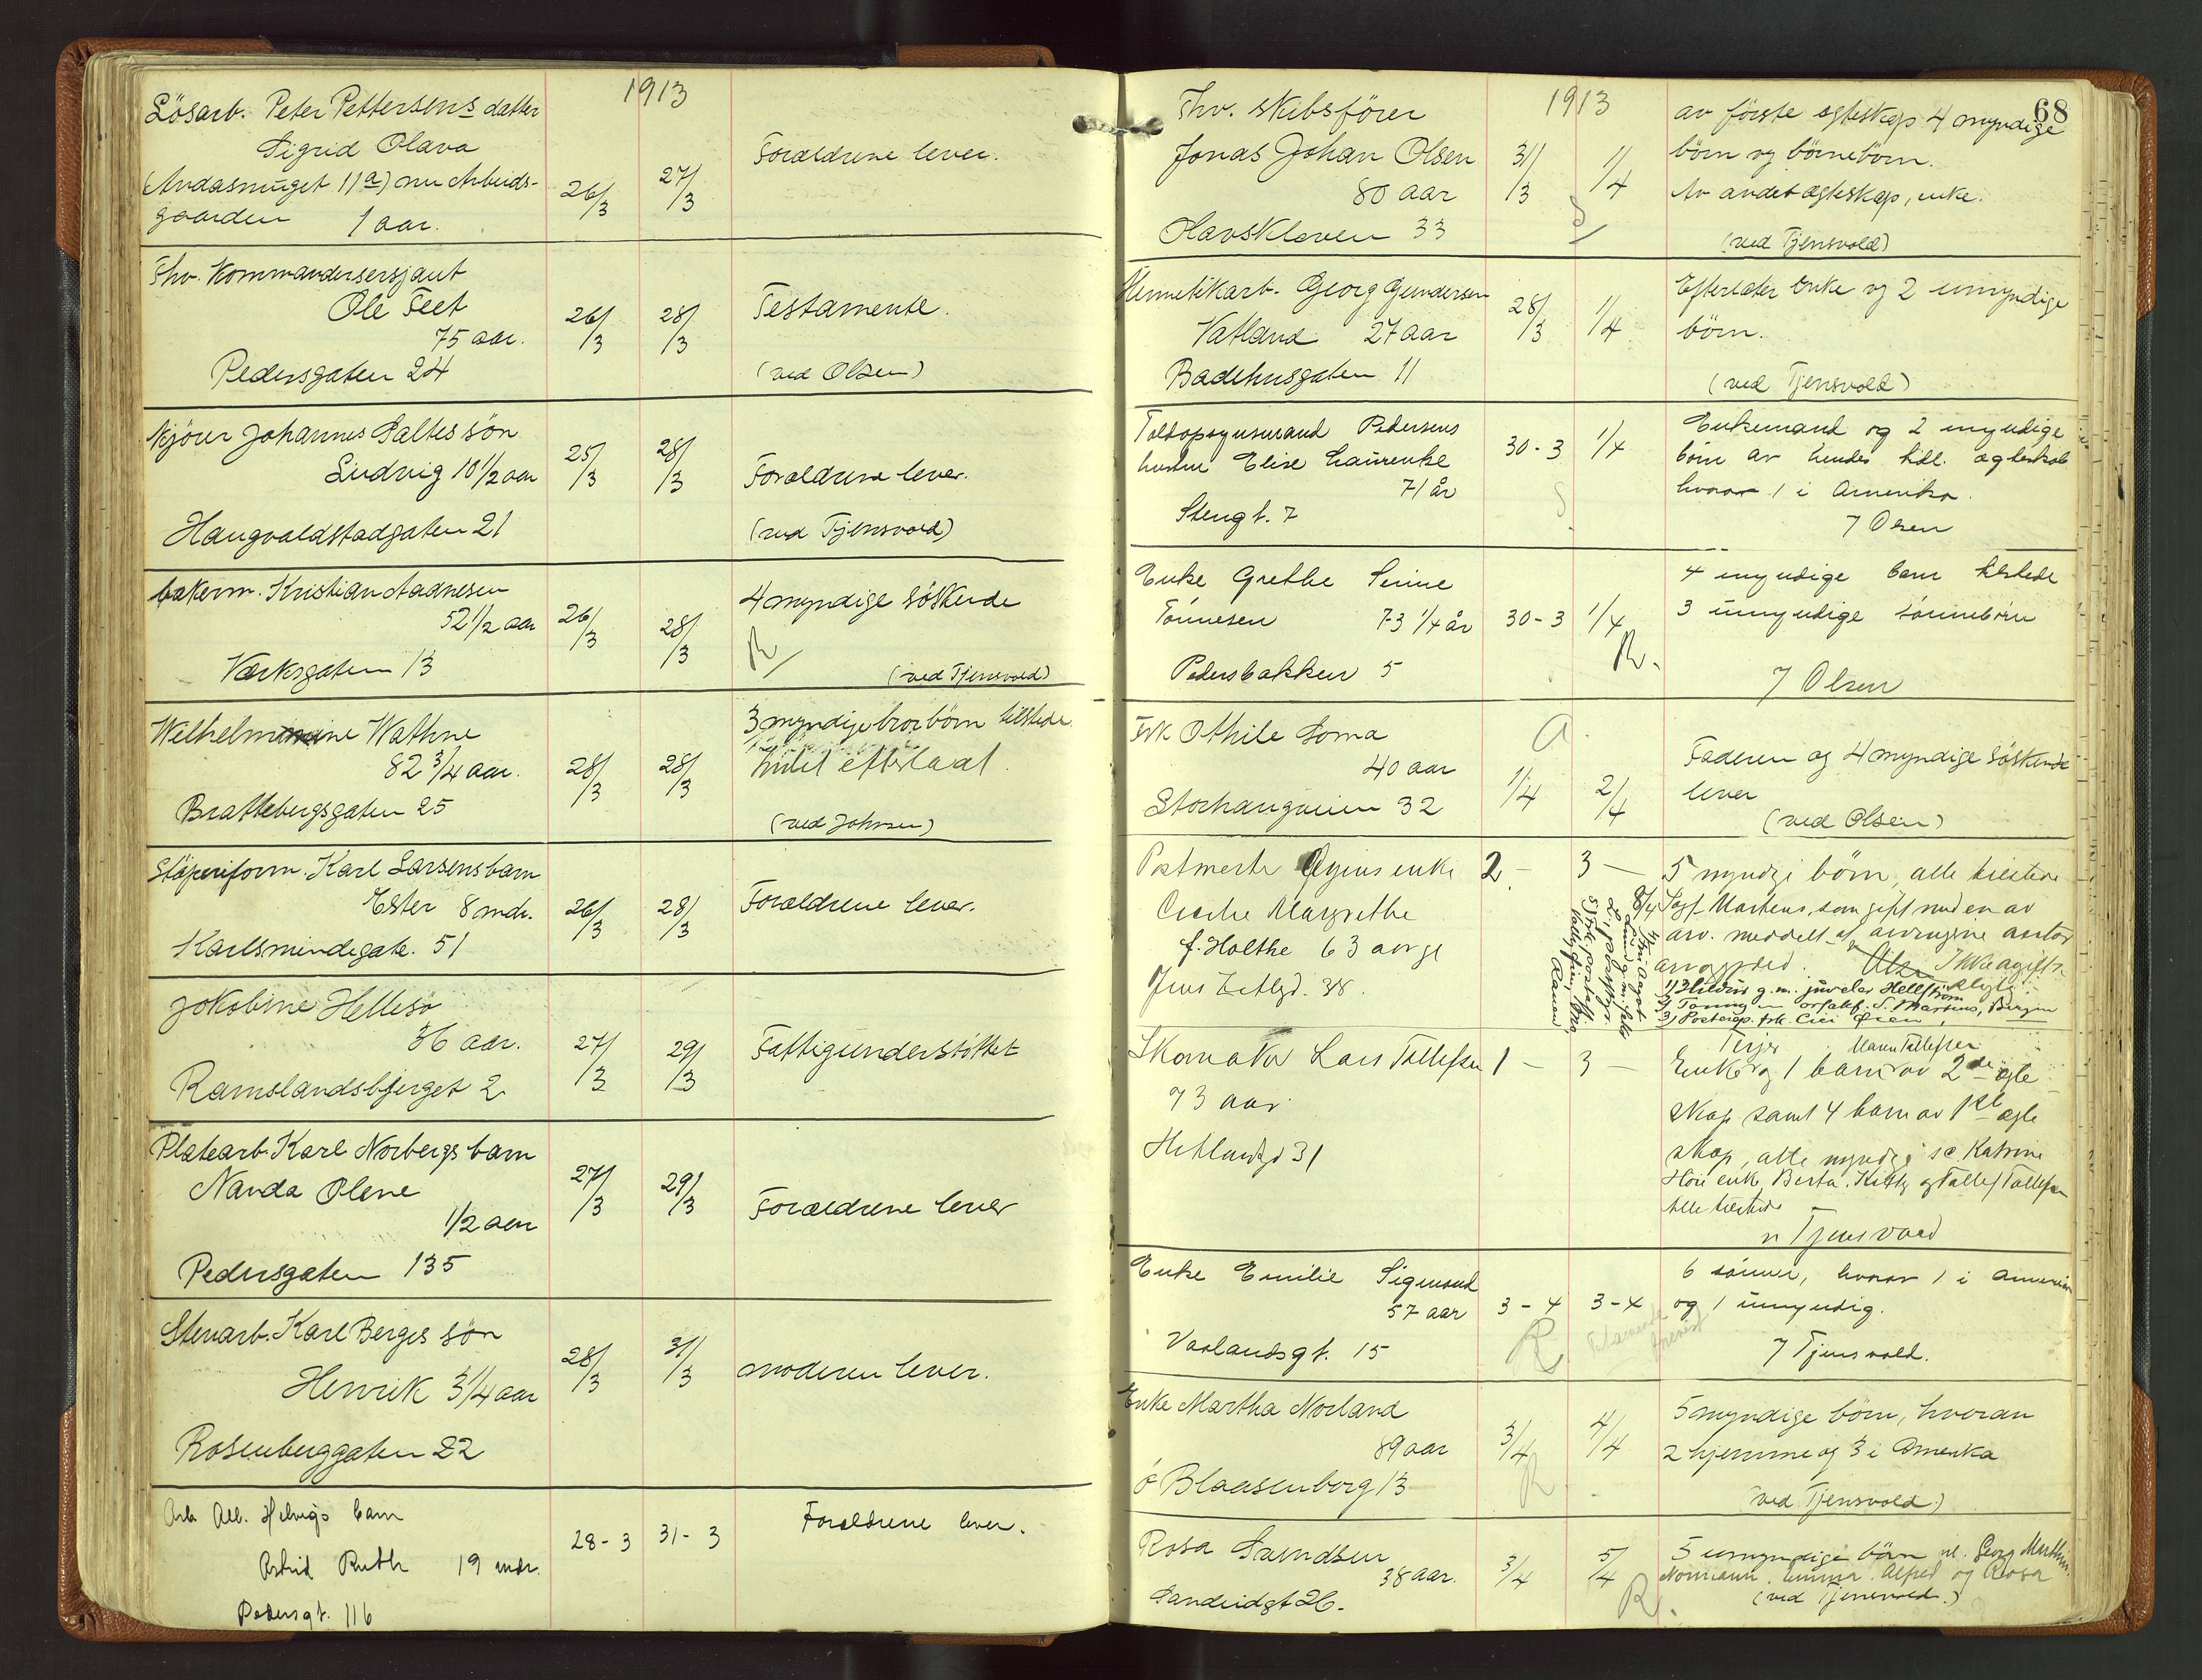 1913
Lösarb. Peter Pettersens datter
Sigrid Olava
(Andasmuget 11a) nu Arbeids-
gaarden 1 aar.
26/3 27/3
Forældrene lever.
Fhv. Kommandersersjant
Ole Feet
75 aar.
Pedersgaten 24
26/3 28/3
Testamente.
(ved Olsen)
Kjörer Johannes Saltes sön
Ludvig 10 1/2 aar
Haugvaldstadgaten 21
25/3 28/3
Forældrene lever.
(ved Tjensvold)
bakerm. Kristian Aadnesen
52 1/2 aar
Verksgaten 13
26/3 28/3
4 myndige söskende
R
(ved Tjensvold)
Wilhelmine Wathne
82 3/4 aar.
Brattebergsgaten 25
28/3 28/3
3 myndige brorbörn tilstede
Intet efterlaat.
(ved Johnsen)
Stöperiform. Karl Larsens barn
Ester 8 mdr.
Karlsmindegate. 51
26/3 28/3
Forældrene lever.
Jokobine Hellesö
36 aar.
Ramslandsbjerget 2
27/3 29/3
Fattigunderstöttet
Platearb. Karl Norbergs barn
Nanda Olene
1/2 aar
Pedersgaten 135
27/3 29/3
Forældrene lever
Stenarb. Karl Berges sön
Henrik 3 1/4 aar
Rosenberggaten 22
28/3 31/3
moderen lever.
Arb Alb. Helvigs barn
Astrid Ruth 19 mdr.
Pedersgt. 116
28-3 31-3
Forældrene lever.
68
1913
Fhv. Skibsförer
Jonas Johan Olsen
80 aar
Olavskleven 33
31/3 1/4
av förste egteskap 4 myndige
börn og börnebörn.
Av andet ægteskap, enke.
(ved Tjensvold)
Hermetikarb. Georg Gundersen
Vatland 27 aar
Badehusgaten 11
28/3 1/4
Efterlater Enke og 2 umyndige
börn.
(ved Tjensvold)
Toldopsynsmand Pedersens
hustru Elise Laurenke
71 år
Stengt. 7
30-3 1/4
Enkemand og 2 myndige
börn av hendes tidl. ægteskab
hvorav 1 i Amerika.
Olsen
Enke Grethe Serine
Tönnesen 73 1/4 år
Pedersbakken 5
30-3 1/4
R.
4 myndige barn tilstede
3 umyndige sönnebörn
Olsen
Frk Othile Soma
40 aar
Storhaugveien 32
a.
1/4 2/4
Faderen og 4 myndige söskende
lever
(ved Olsen)
Postmester Øyens enke
Cecilie Margrethe
f. Holthe 63 aar g
Jens Zetlgt. 38.
2 - 3 -
5 myndige börn, alle tilstede
8/4 Sagf. Martens, som gift med en av
arv. meddelt at arvingene antar
arv og gjeld.
1) Hildur g.m. juveler Hellström
2) g.m. orsakf. S. Martens, Bergen
3) Postexp. frk. Cici Øien
Skomaker Lars Tallefsen
73 aar
Hetlandsgt 31
1 - 3 -
Terjer Maren Tallefsen
Enke og 1 barn av 2det ægte
skap samt 4 barn av 1ste ægte
skap, alle myndig sc. Katrine
enke, Berta, Kitty og Tallef Tallefsen
alle tilstede
Tjensvold
Enke Emilie Sigmund
57 aar
Varlandsgt. 15
3-4 3-4
R
6 sönner, hvorav 1 i Amerika
og 1 umyndig.
Tjensvold.
Enke Martha Norland
89 aar
ö Blaasenborg 13
3/4 4/4
R
5 myndige börn, hvorav
2 hjemme og 3 i Amerika
(ved Tjensvold)
Rosa Svendsen
38 aar.
Sandeidgt 26.
3/4 5/4
R.
5 umyndige börn nl. Georg
Normann, Emma, Alfred og Rosa
(ved Tjensvold.)